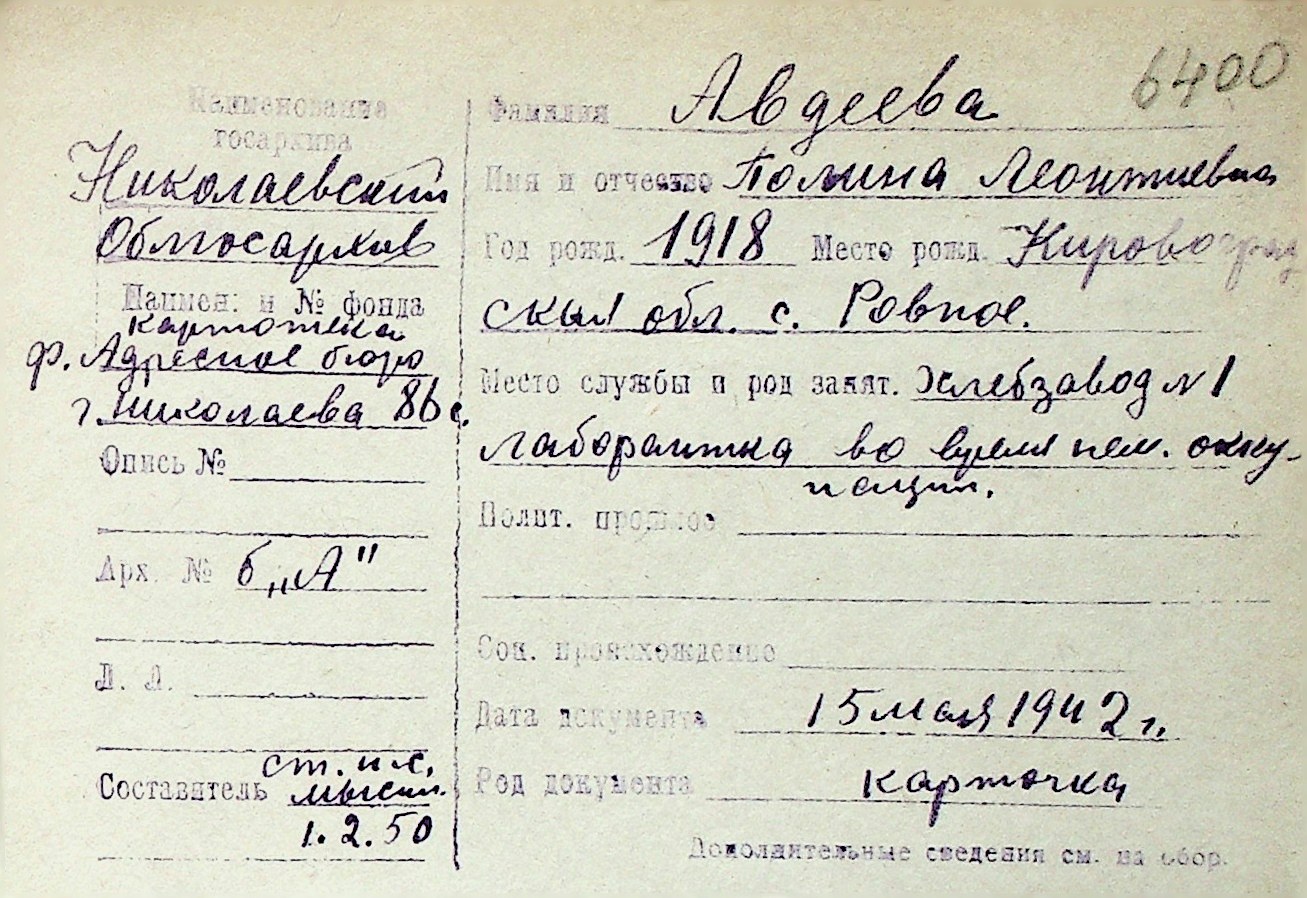 6400
Наименование
госархива
Николаевский
Облгосархив
Наимен. и № фонда
картотека
ф. Адресное бюро
г. Николаева 86 с.
Опись №
Арх. № б„А"
Л. Л.
Составитель ст. н.с.
1.2.50
Фамилия Авдеева
Имя и отчество Полина Леонтиевна
Год рожд. 1918 Место рожд. Кировоград
ская обл. с. Ровное.
Место службы и род занят. Хлебзавод N1
лаборантка во время нем. окку-
пации.
Полит. прошлое
Соц. происхождение
Дата документа 15 мая 1942 г.
Род документа карточка
Дополнительные сведения см. на обор.